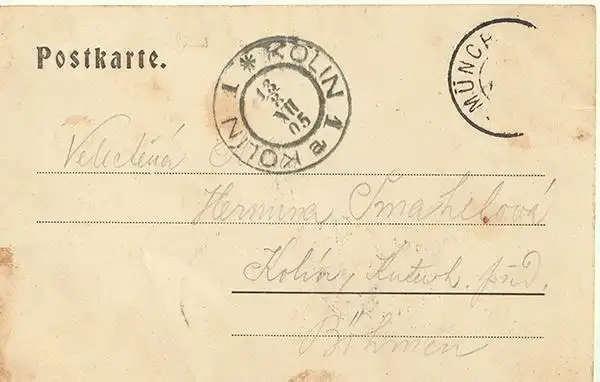 Postkarte.
* KOLÍN 1 KOLIN 1
13
8
XII
05
MÜNC
Veletěná
Hermina Smahelová
Kolín, Kutnoh. před.
Böhmen